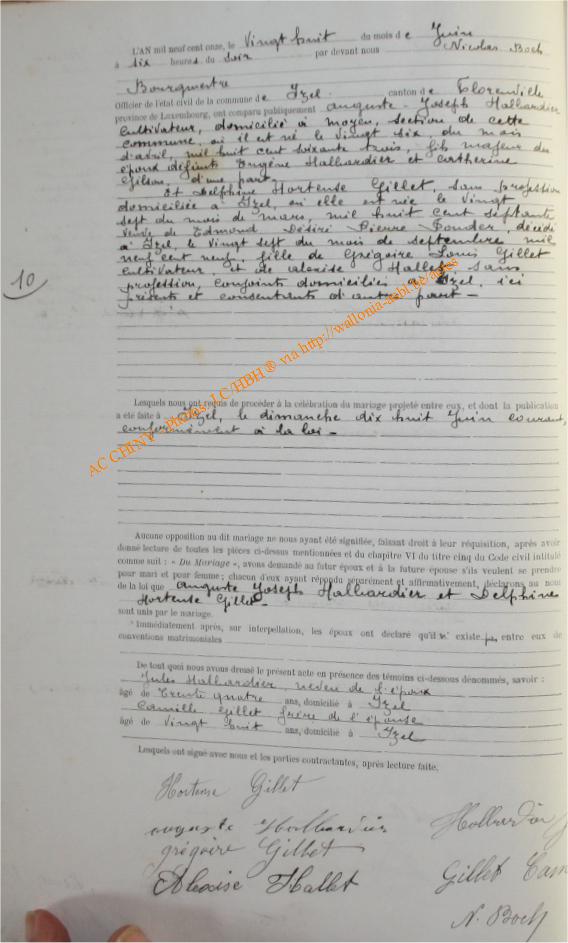 L'AN mil neuf cent onze, le vingt huit du mois de Juin
à six heures du soir par devant nous Nicolas Boch
Bourgmestre
Officier de l'état civil de la commune de Izel canton de Florenville
province de Luxembourg, ont comparu publiquement Auguste Joseph Halbardier
cultivateur, domicilié à Moyen, section de cette
commune, où il est né le vingt six du mois
d'avril mil huit cent soixante trois, fils majeur des
époux défunts Eugène Halbardier et Catherine
Gilson, d'une part
Et Delphine Hortense Gillet, sans profession
domiciliée à Izel, où elle est née le vingt
sept du mois de mars, mil huit cent septante
veuve de Edmond Désiré Pierre décédé
à Izel, le vingt sept du mois de septembre mil
neuf cent neuf, fille de Grégoire Louis Gillet
cultivateur, et de Aloxise Hallet, sans
profession, conjoints domiciliés à Izel, ici
présents et consentants d'autre part -
10
Lesquels nous ont requis de procéder à la célébration du mariage projeté entre eux, et dont la publication
a été faite à Izel, le dimanche dix huit Juin courant,
conformément à la loi -
Aucune opposition au dit mariage ne nous ayant été signifiée, faisant droit à leur réquisition, après avoir
donné lecture de toutes les pièces ci-dessus mentionnées et du chapitre VI du titre cinq du Code civil intitulé
comme suit : « Du Mariage », avons demandé au futur époux et à la future épouse s'ils veulent se prendre
pour mari et pour femme ; chacun d'eux ayant répondu séparément et affirmativement, déclarons au nom
de la loi que Auguste Joseph Halbardier et Delphine
Hortense Gillet -
sont unis par le mariage.
Immédiatement après, sur interpellation, les époux ont déclaré qu'il n'existe pas entre eux de
conventions matrimoniales
De tout quoi nous avons dressé le présent acte en présence des témoins ci-dessous dénommés, savoir :
Jules Halbardier, neveu de l'époux
âgé de trente quatre ans, domicilié à Izel
Camille Gillet frère de l'épouse
âgé de vingt huit ans, domicilié à Izel
Lesquels ont signé avec nous et les parties contractantes, après lecture faite.
Hortense Gillet
Auguste Halbardier Halbardier J
Grégoire Gillet
Aloxise Hallet Gillet Cam
N. Boch
AC CHINY - Photos J.C/HBH ® via http://wallonia-asbl.be/actes